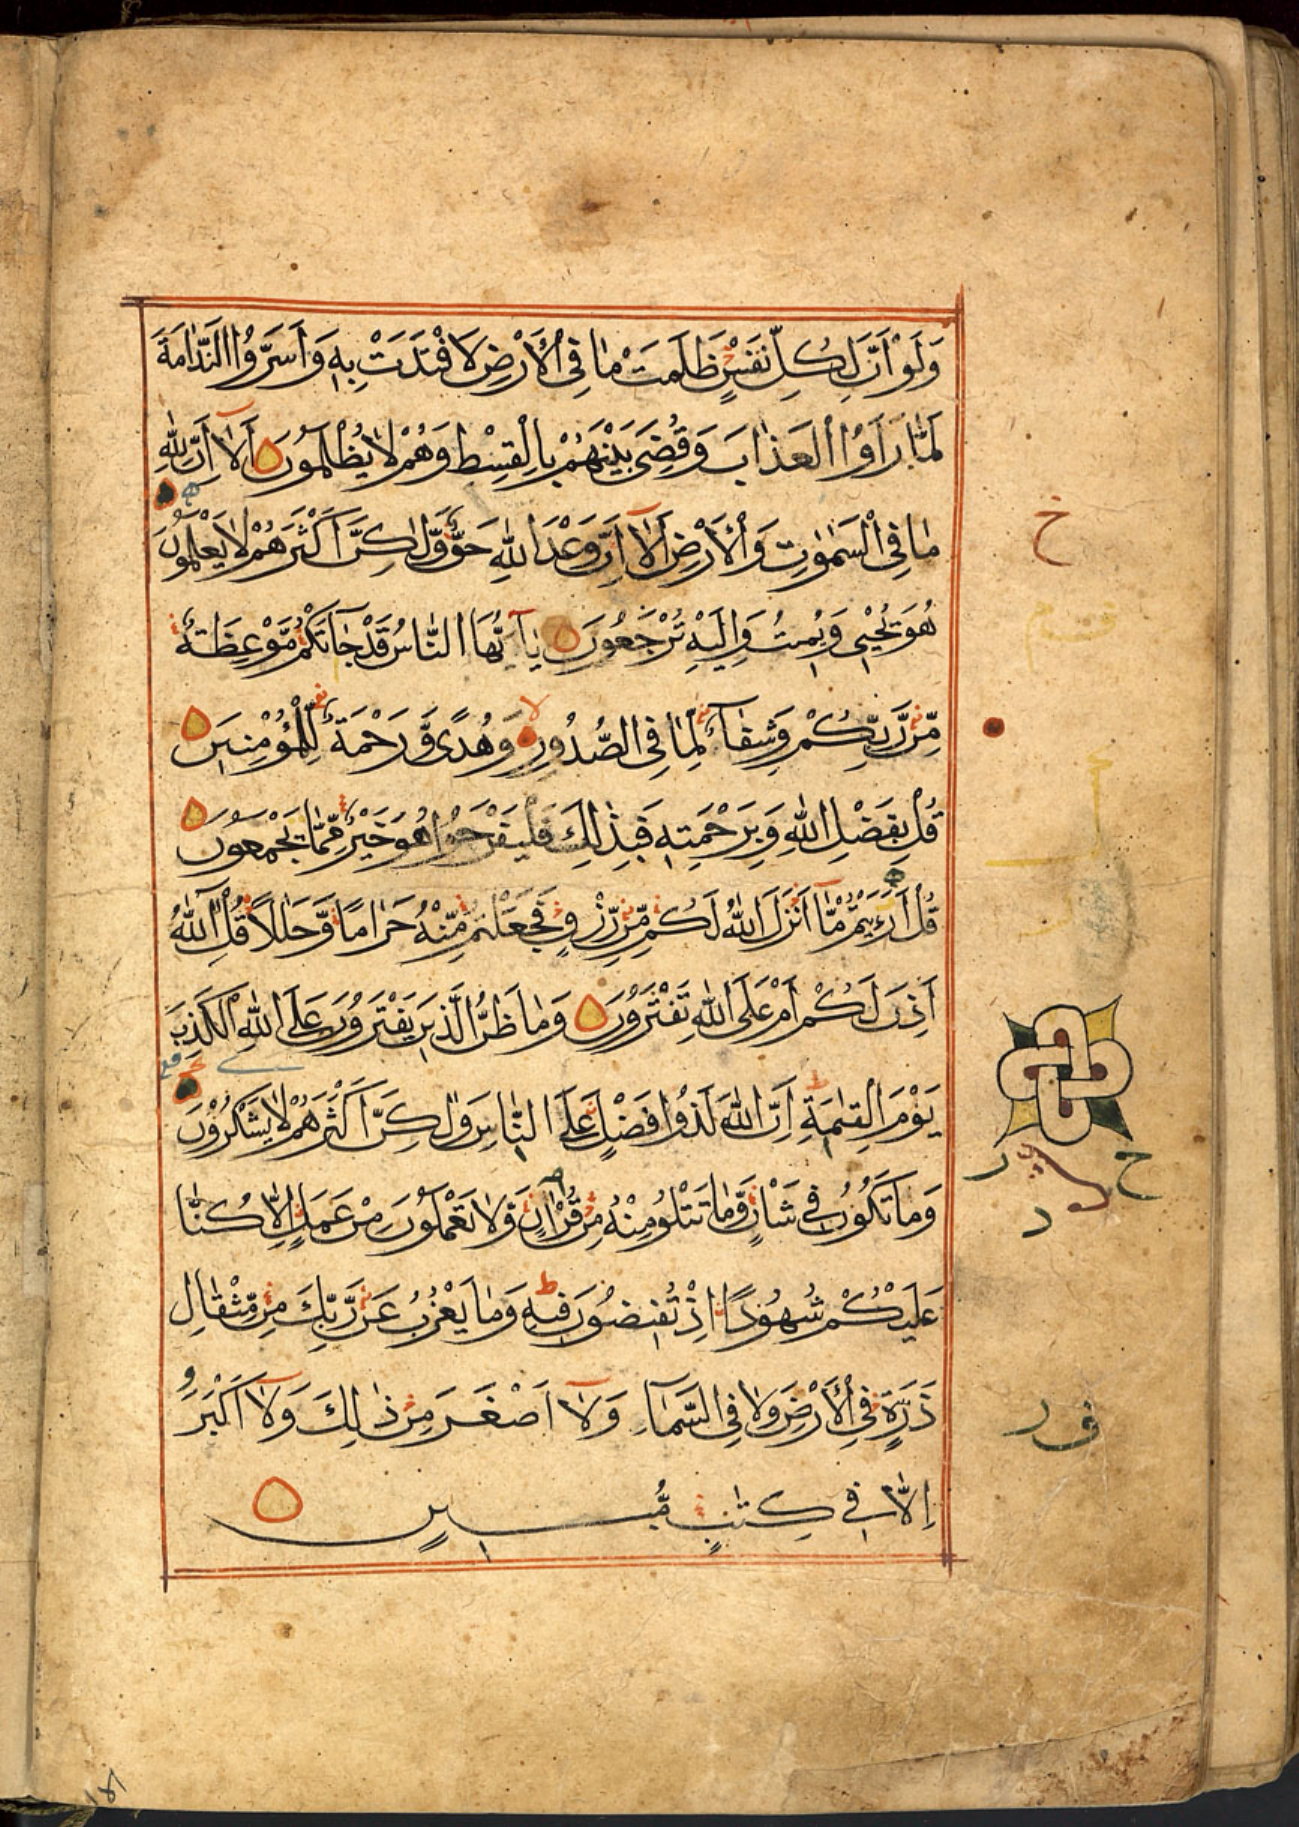 وَلَوْ اَنَّ لِكُلِّ نَفْسٍ ظَلَمَتْ مَا فِی الْاَرْضِ لَافْتَدَتْ بِهٖ وَاَسَرُّوا النَّدَامَةَ
لَمَّا رَاَوُا الْعَذَابَ وَقُضِیَ بَیْنَهُمْ بِالْقِسْطِ وَهُمْ لَا یُظْلَمُونَ اَلَاۤ اِنَّ لِلّٰهِ
مَا فِی السَّمٰوٰتِ وَالْاَرْضِ اَلَاۤ اِنَّ وَعْدَ اللّٰهِ حَقٌّ وَّلٰكِنَّ اَكْثَرَهُمْ لَا یَعْلَمُونَ
هُوَ یُحْیٖ وَیُمِیتُ وَاِلَیْهِ تُرْجَعُونَ یَاۤ اَیُّهَا النَّاسُ قَدْ جَاۤءَتْكُمْ مَّوْعِظَةٌ
مِّنْ رَّبِّكُمْ وَشِفَاۤءٌ لِّمَا فِی الصُّدُورِ وَهُدًی وَّرَحْمَةٌ لِّلْمُؤْمِنِینَ
قُلْ بِفَضْلِ اللّٰهِ وَبِرَحْمَتِهٖ فَبِذٰلِكَ فَلْیَفْرَحُوا هُوَ خَیْرٌ مِّمَّا یَجْمَعُونَ
قُلْ اَرَءَیْتُمْ مَّاۤ اَنْزَلَ اللّٰهُ لَكُمْ مِّنْ رِّزْقٍ فَجَعَلْتُمْ مِّنْهُ حَرَامًا وَّحَلَالًا قُلْ اٰۤللّٰهُ
اَذِنَ لَكُمْ اَمْ عَلَی اللّٰهِ تَفْتَرُونَ وَمَا ظَنُّ الَّذِینَ یَفْتَرُونَ عَلَی اللّٰهِ الْكَذِبَ
یَوْمَ الْقِیٰمَةِ اِنَّ اللّٰهَ لَذُو فَضْلٍ عَلَی النَّاسِ وَلٰكِنَّ اَكْثَرَهُمْ لَا یَشْكُرُونَ
وَمَا تَكُونُ فِی شَاْنٍ وَّمَا تَتْلُو مِنْهُ مِنْ قُرْاٰنٍ وَّلَا تَعْمَلُونَ مِنْ عَمَلٍ اِلَّا كُنَّا
عَلَیْكُمْ شُهُودًا اِذْ تُفِیضُونَ فِیهِ وَمَا یَعْزُبُ عَنْ رَّبِّكَ مِنْ مِّثْقَالِ
ذَرَّةٍ فِی الْاَرْضِ وَلَا فِی السَّمَاۤءِ وَلَاۤ اَصْغَرَ مِنْ ذٰلِكَ وَلَاۤ اَكْبَرَ
اِلَّا فِی كِتٰبٍ مُّبِینٍ